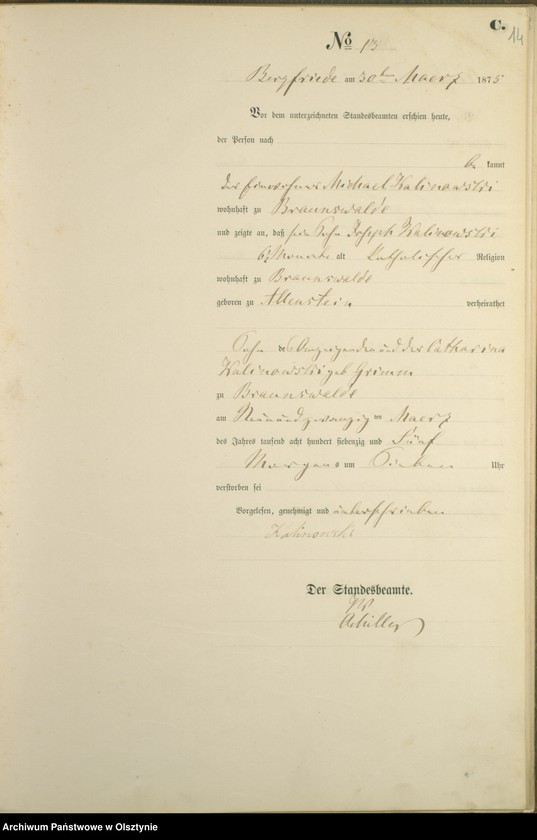 C.
14
No 13
Bergfriede am 30ten Maerz 1875
Vor dem unterzeichneten Standesbeamten erschien heute,
der Person nach
be kannt
der Michael Kalinowski
wohnhaft zu Braunswalde
und zeigte an, daß sein Sohn Joseph Kalinowski
6 Monate alt katholischer Religion
wohnhaft zu Braunswalde
geboren zu Allenstein verheirathet
Sohn des Anzeigenden und der Catharina
Kalinowski geb Grimm
zu Braunswalde
am Neunundzwanzig ten Maerz
des Jahres tausend acht hundert siebenzig und Fünf
Morgens um Sieben Uhr
verstorben sei
Vorgelesen, genehmigt und unterschrieben
Kalinowski
Der Standesbeamte.